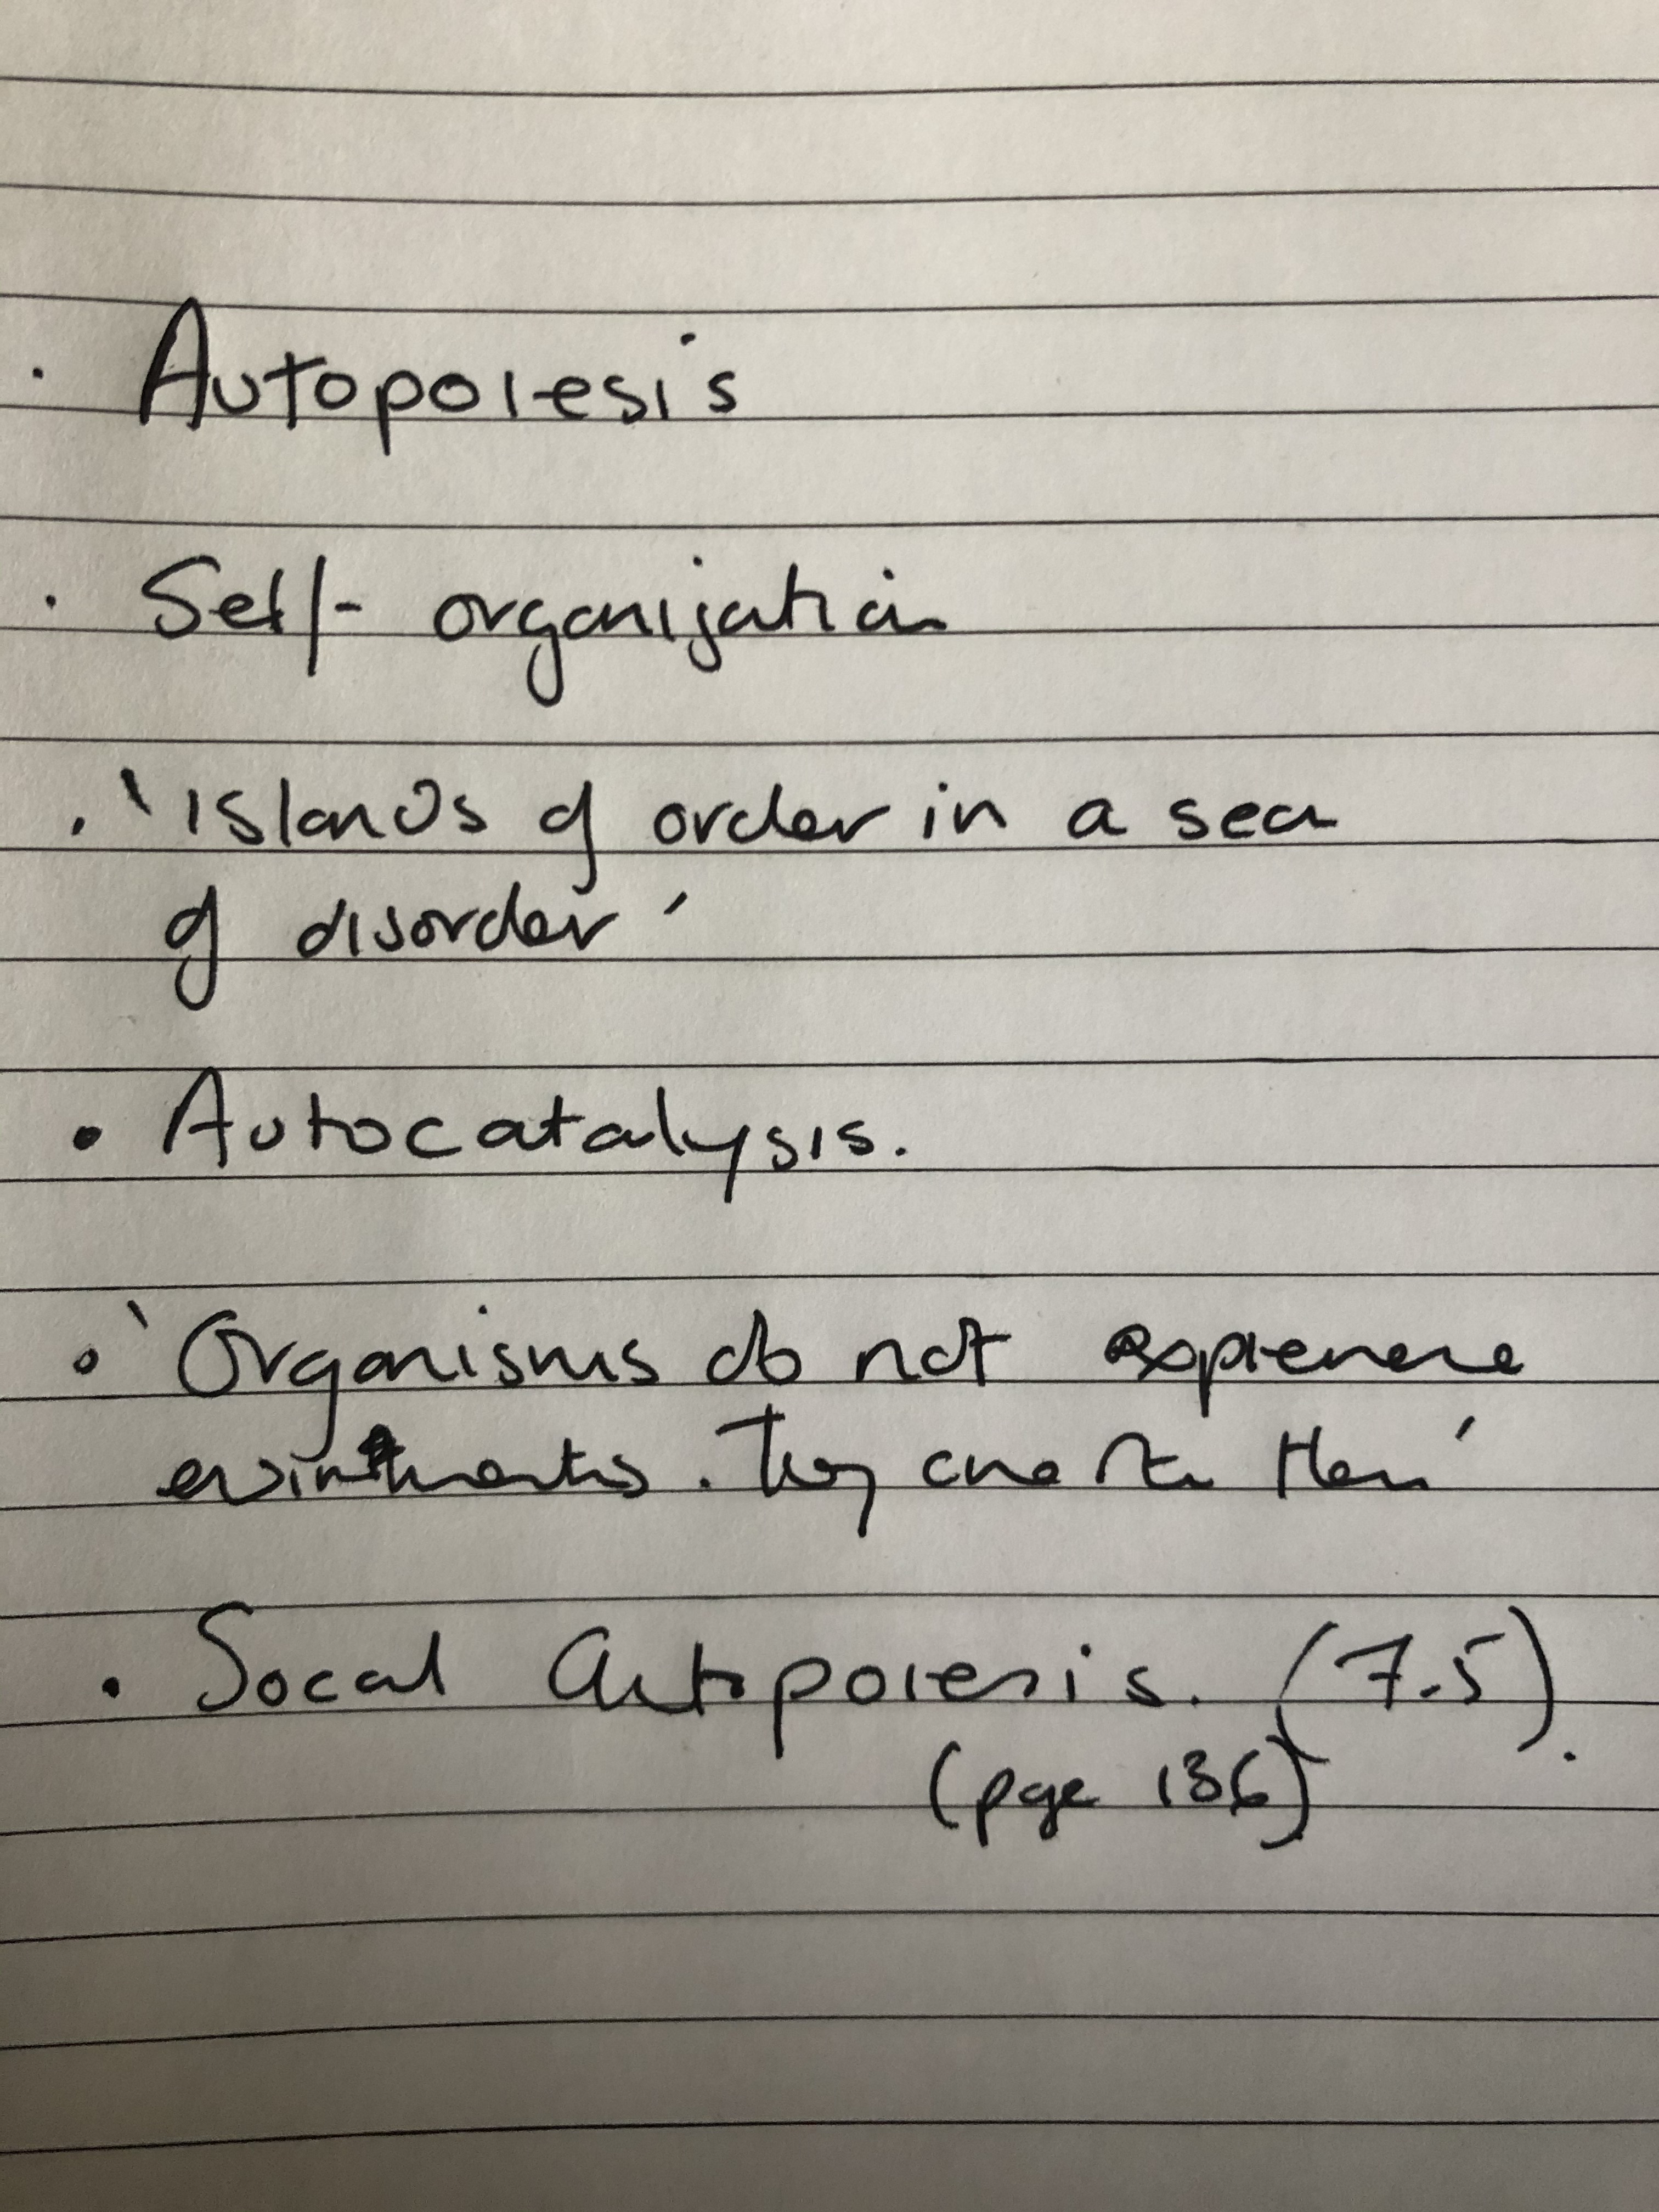 · Autopoiesis
· Self-organization
· 'Islands of order in a sea
of disorder'
· Autocatalysis.
· 'Organisms do not experience
environments. They create them'
· Social Autopoiesis. (7.5).
(page 136)